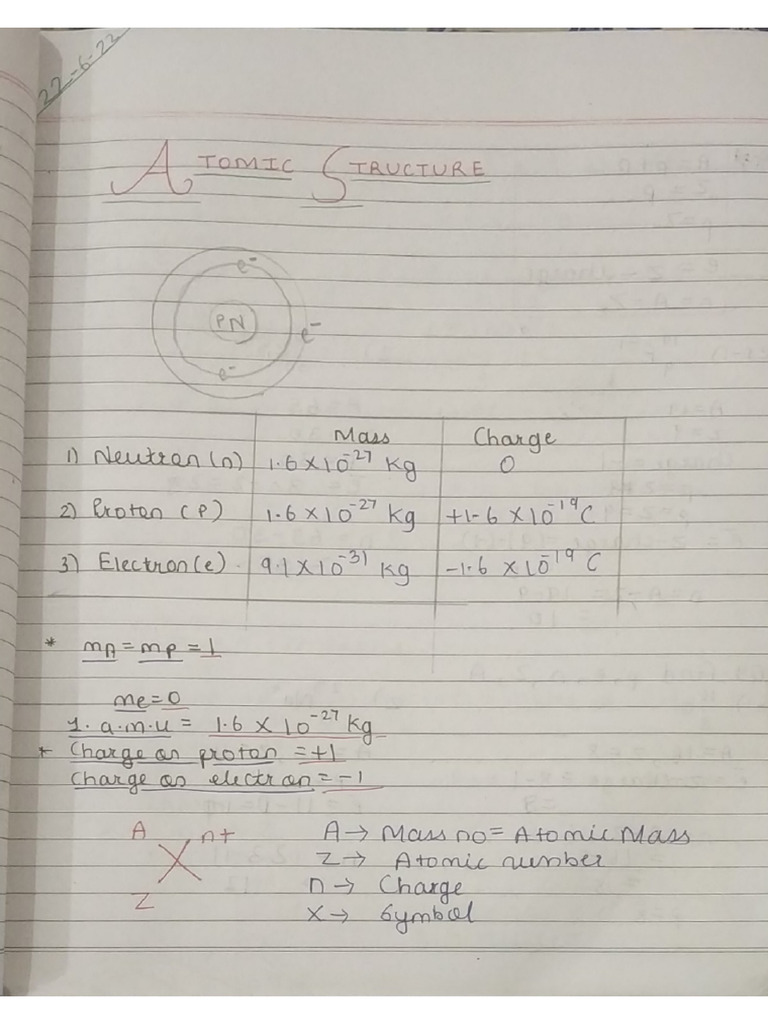 27-6-22
ATOMIC STRUCTURE
e⁻
PN
e⁻
e⁻
Mass Charge
1) Neutron (n) 1.6 × 10⁻²⁷ Kg 0
2) Proton (P) 1.6 × 10⁻²⁷ Kg +1.6 × 10⁻¹⁹ C
3) Electron (e) 9.1 × 10⁻³¹ Kg -1.6 × 10⁻¹⁹ C
* mn = mp = 1
me = 0
1. a.m.u = 1.6 × 10⁻²⁷ Kg
* Charge on proton = +1
Charge on electron = -1
A n+ A → Mass no = Atomic Mass
X Z → Atomic number
Z n → Charge
X → Symbol